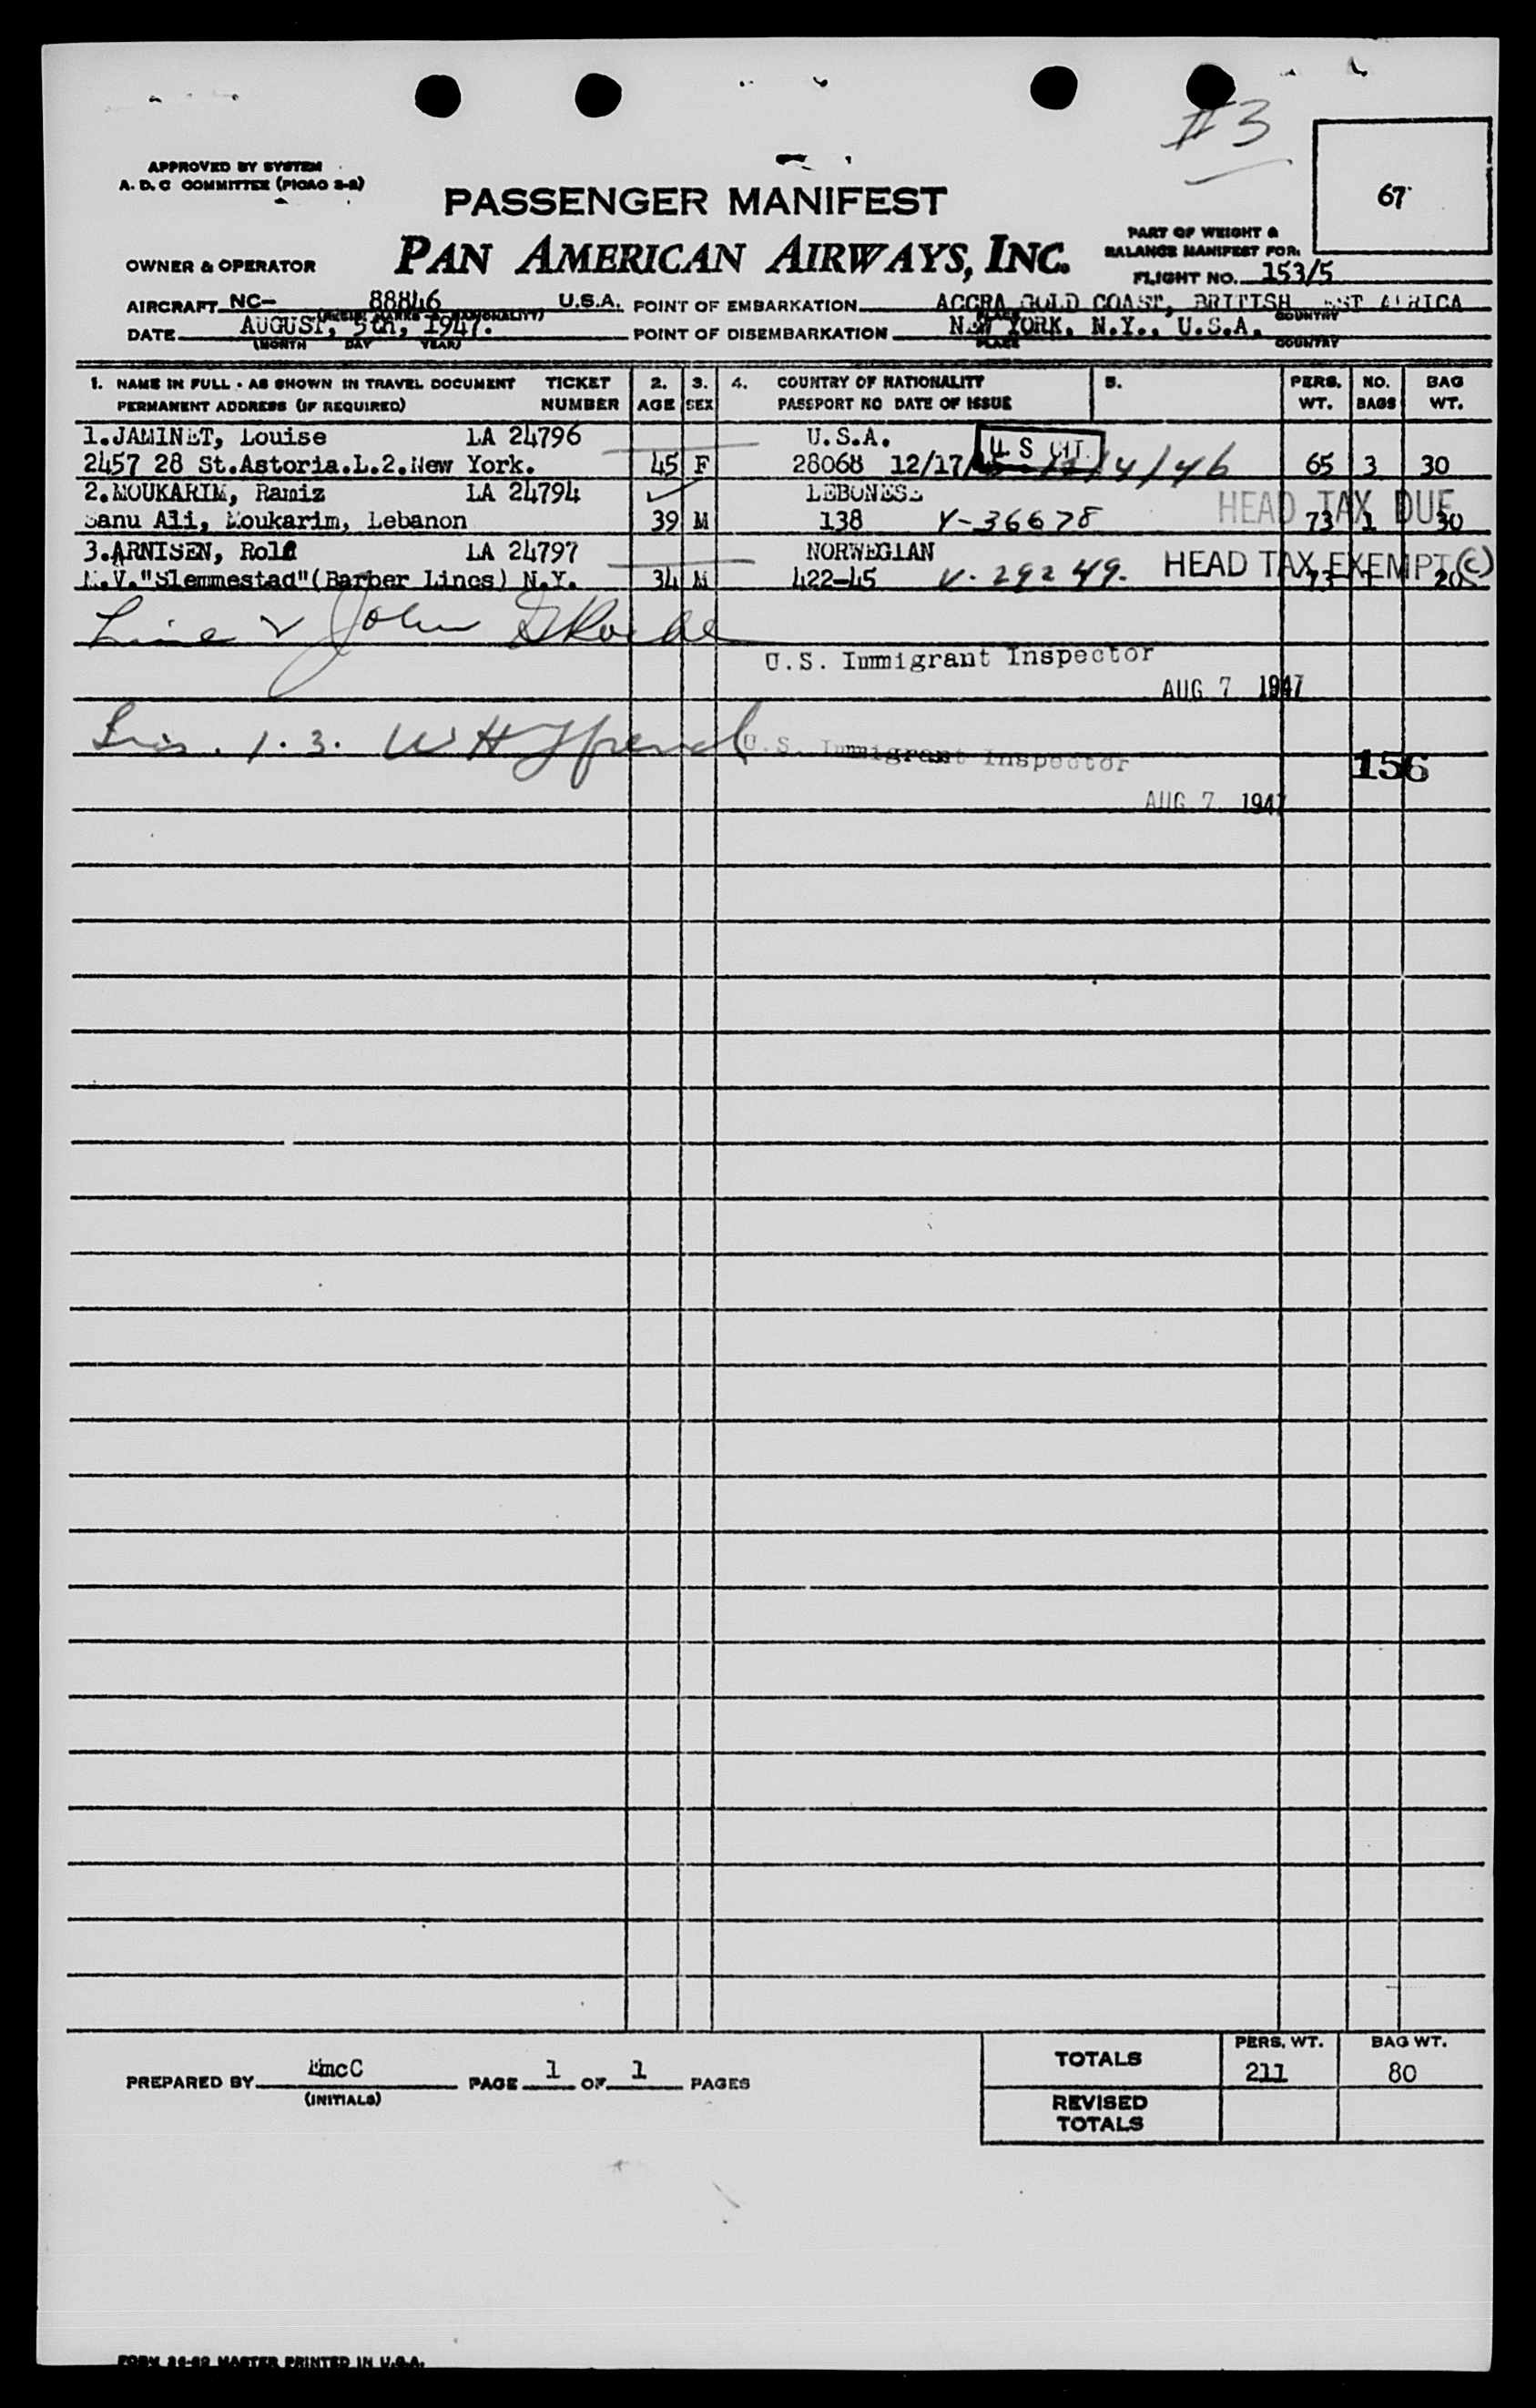 #3
APPROVED BY SYSTEM
A. D. C COMMITTEE (PICAO 2-2)
67
PASSENGER MANIFEST
PART OF WEIGHT &
BALANCE MANIFEST FOR:
OWNER & OPERATOR PAN AMERICAN AIRWAYS, INC.
FLIGHT NO. 153/5
AIRCRAFT NC- 88846 U.S.A. POINT OF EMBARKATION ACCRA GOLD COAST, BRITISH AFRICA
DATE AUGUST, 5th, 1947. POINT OF DISEMBARKATION NEW YORK, N.Y., U.S.A.
(MONTH DAY YEAR) PLACE COUNTRY
1. NAME IN FULL - AS SHOWN IN TRAVEL DOCUMENT TICKET 2. 3. 4. COUNTRY OF NATIONALITY 5. PERS. NO. BAG
PERMANENT ADDRESS (IF REQUIRED) NUMBER AGE SEX PASSPORT NO DATE OF ISSUE WT. BAGS WT.
1.JAMINET, Louise LA 24796 U.S.A. U.S CIT.
2457 28 St.Astoria.L.2.New York. 45 F 28068 12/17/ 4/46 65 3 30
2.MOUKARIM, Ramiz LA 24794 LEBONESE HEAD TAX DUE
Sanu Ali, Moukarim, Lebanon 39 M 138 V-36678 73 1 30
3.ARNISEN, Rolf LA 24797 NORWEGIAN HEAD TAX EXEMPT (C)
M.V."Slemmestad"(Barber Lines) N.Y. 34 M 422-45 V-29249. 73 1 20
Line 2 John
U.S. Immigrant Inspector
AUG 7 1947
Lines. 1. 3. W H
U.S. Immigrant Inspector
156
AUG 7 1947
TOTALS PERS. WT. BAG WT.
211 80
PREPARED BY EmcC PAGE 1 OF 1 PAGES
(INITIALS)
REVISED
TOTALS
FORM 26-92 MASTER PRINTED IN U.S.A.